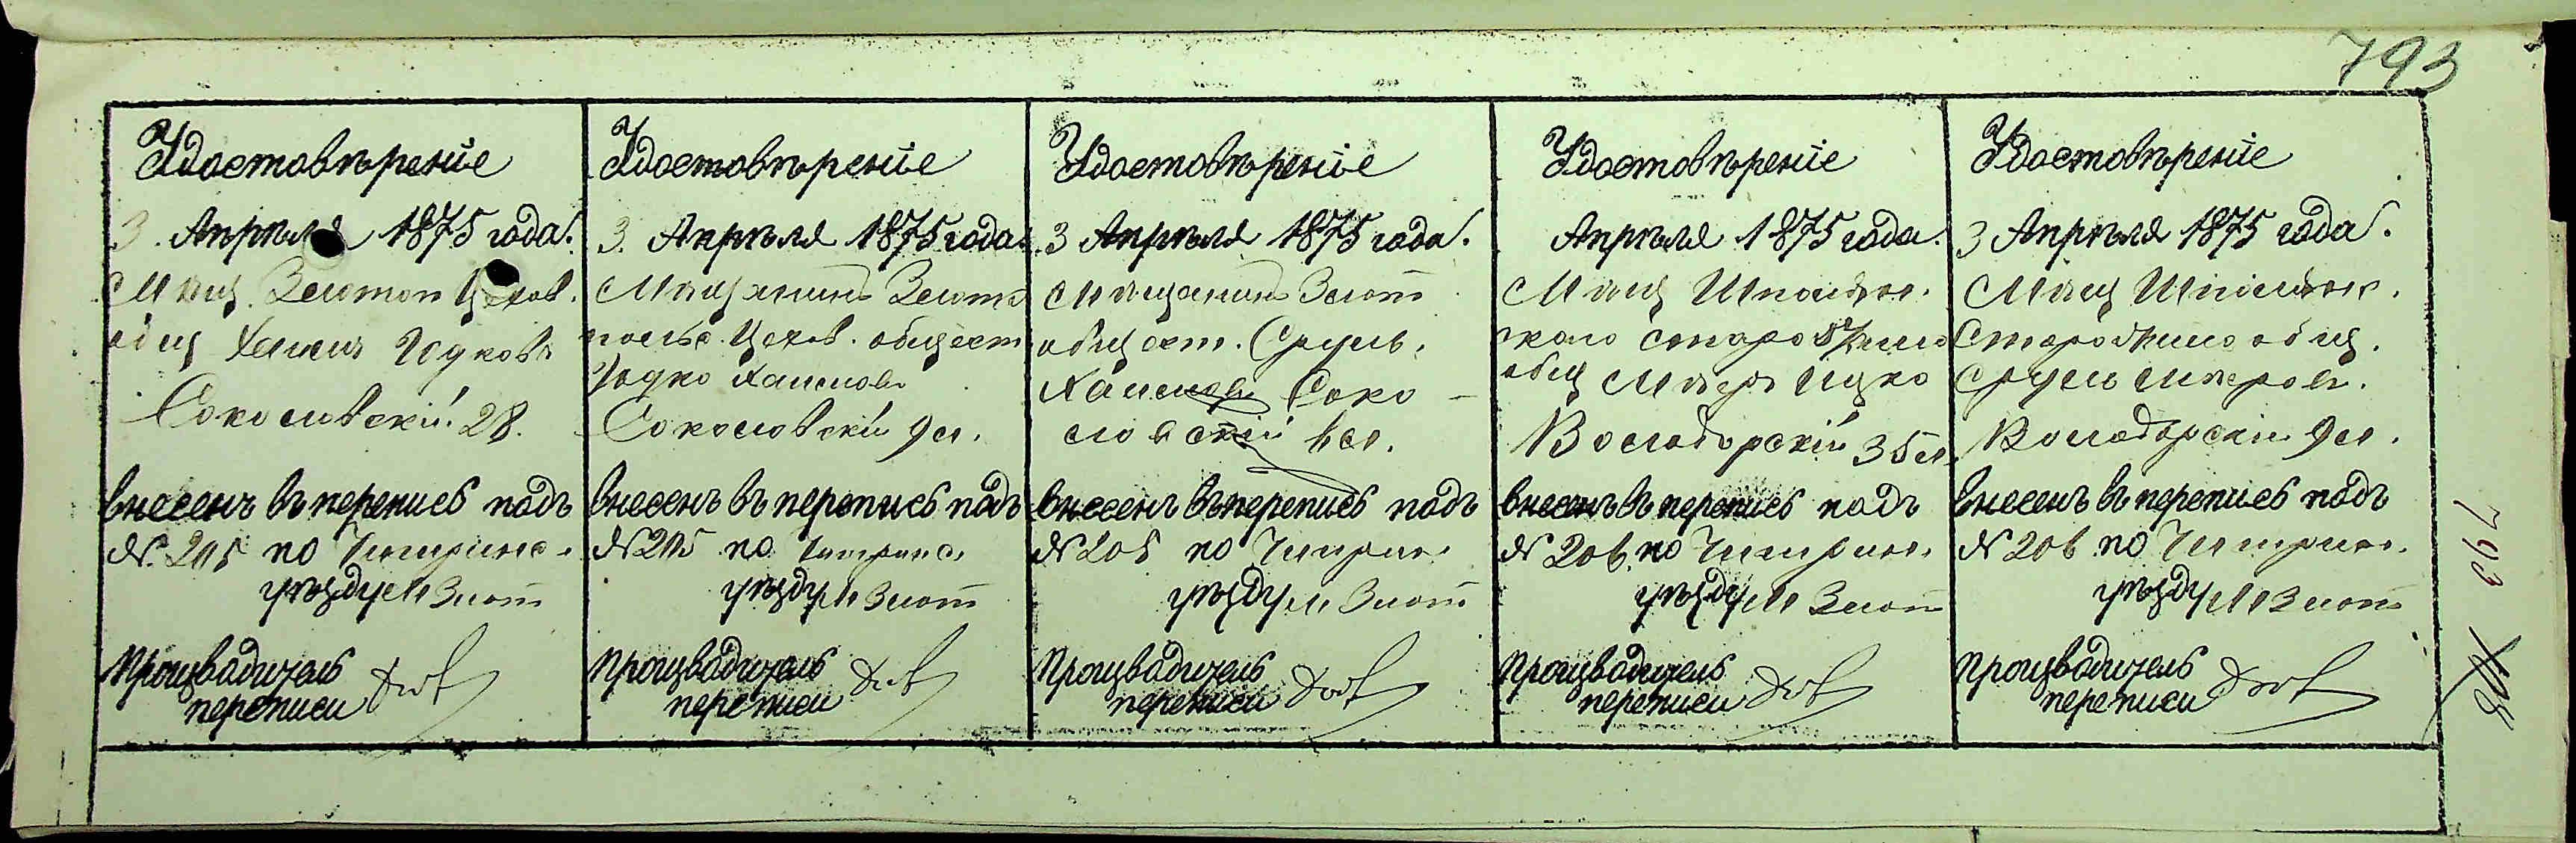 793
Удостовѣреніе
3. Апрѣля 1875 года.
Мѣщ. Златоп Цехов.
общ Хаимъ Юдковъ
Соколовскій 28.
внесенъ въ перепись подъ
№ 205 по Чигринс.
уѣзду М Злот
Производитель
переписи
Удостовѣреніе
3. Апрѣля 1875 года.
Мѣщанинъ Злато
польс. Цехов. общест
Юдко Хаимовъ
Соколовскій 9 л.
внесенъ въ перепись подъ
№ 205 по Чигринс.
уѣзду М Злот
Производитель
переписи
Удостовѣреніе
3 Апрѣля 1875 года.
Мѣщанинъ Злот
общест. Сруль
Хаимовъ Соко-
ловскій л.
внесенъ въ перепись подъ
№ 205 по Чигрин.
уѣзду М Злот
Производитель
переписи
Удостовѣреніе
Апрѣля 1875 года.
Мѣщ Шполян
ского старожил
общ Меер Ицко
Володарскій 35 л.
внесенъ въ перепись подъ
№ 206 по Чигрин.
уѣзду М Злот
Производитель
переписи
Удостовѣреніе
3 Апрѣля 1875 года.
Мѣщ Шполянс.
Старожил общ.
Срул Мееров.
Володарскій 9 л.
внесенъ въ перепись подъ
№ 206 по Чигрин.
уѣзду М Злот
Производитель
переписи
793